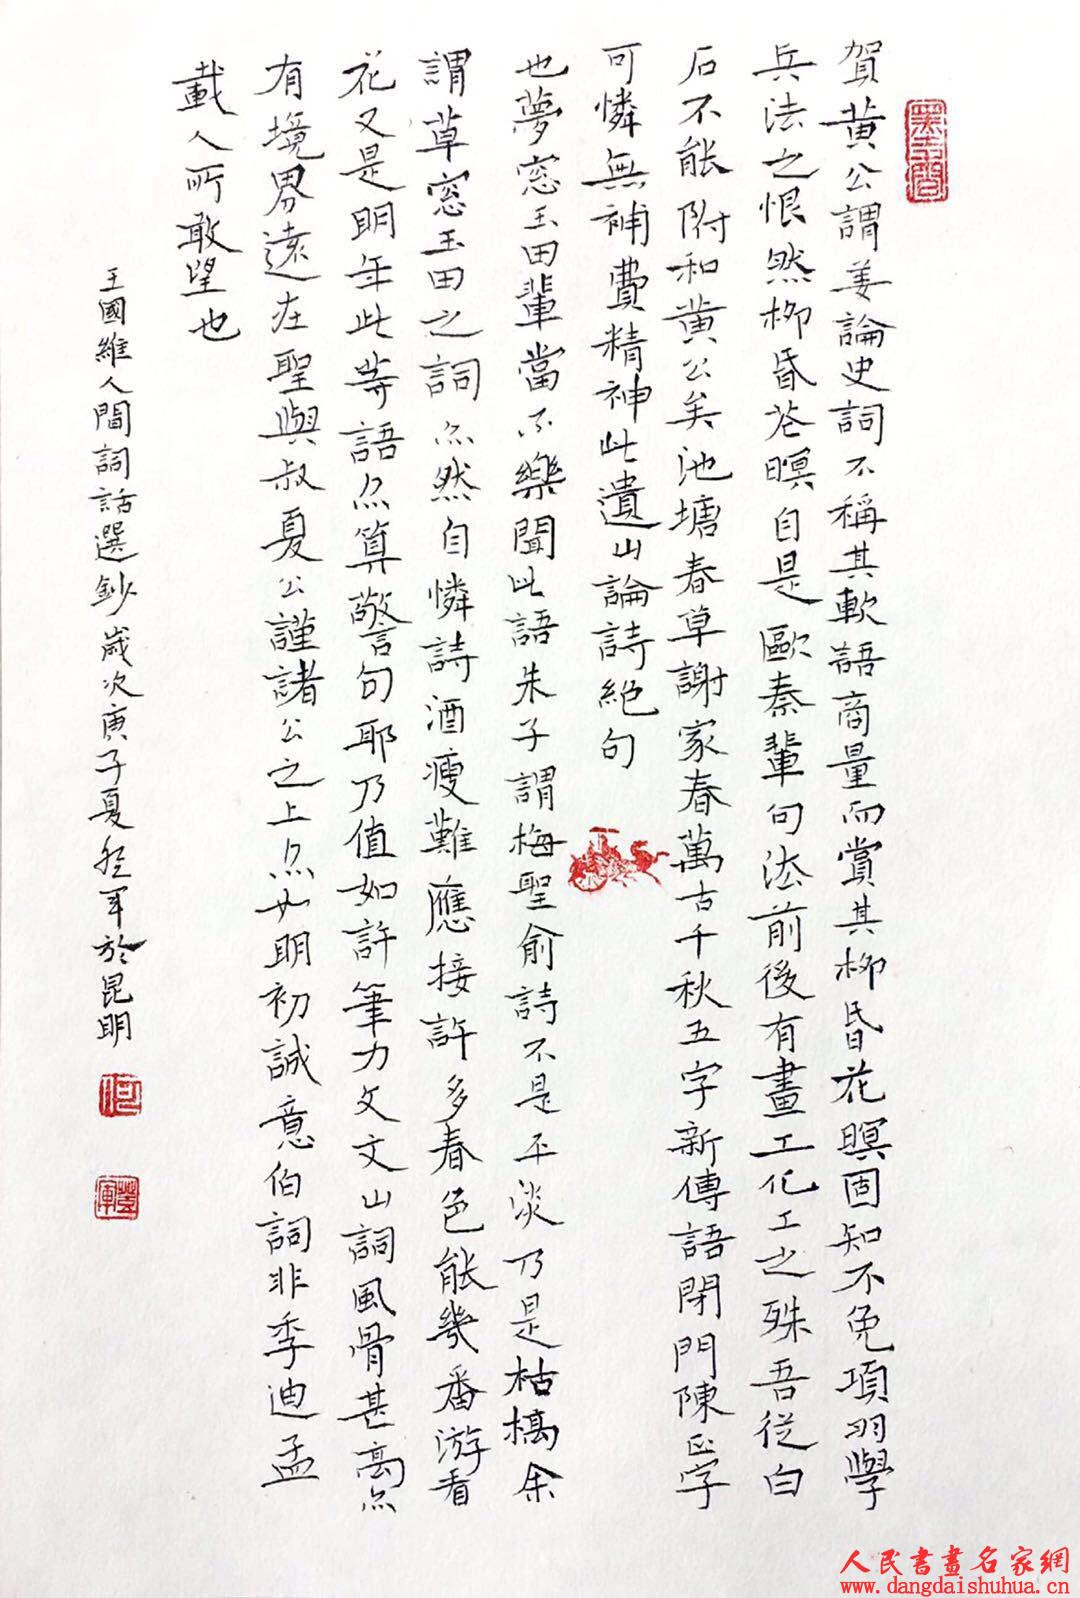 賀黄公謂姜論史詞不稱其軟語商量而賞其柳昏花暝固知不免項羽學
兵法之恨然柳昏花暝自是歐秦輩句法前後有畫工化工之殊吾從白
石不能附和黄公矣池塘春草謝家春萬古千秋五字新傳語閉門陳正字
可憐無補費精神此遺山論詩絕句
也夢窓玉田輩當不樂聞此語朱子謂梅聖俞詩不是平淡乃是枯槁余
謂草窓玉田之詞亦然自憐詩酒瘦難應接許多春色能幾番游看
花又是明年此等語亦算警句耶乃值如許筆力文文山詞風骨甚高亦
有境界遠在聖與叔夏公謹諸公之上亦如明初誠意伯詞非季迪孟
載人所敢望也
王國維人間詞話選鈔歲次庚子夏登軍於昆明
何
登軍
人民書畫名家網
www.dangdaishuhua.cn